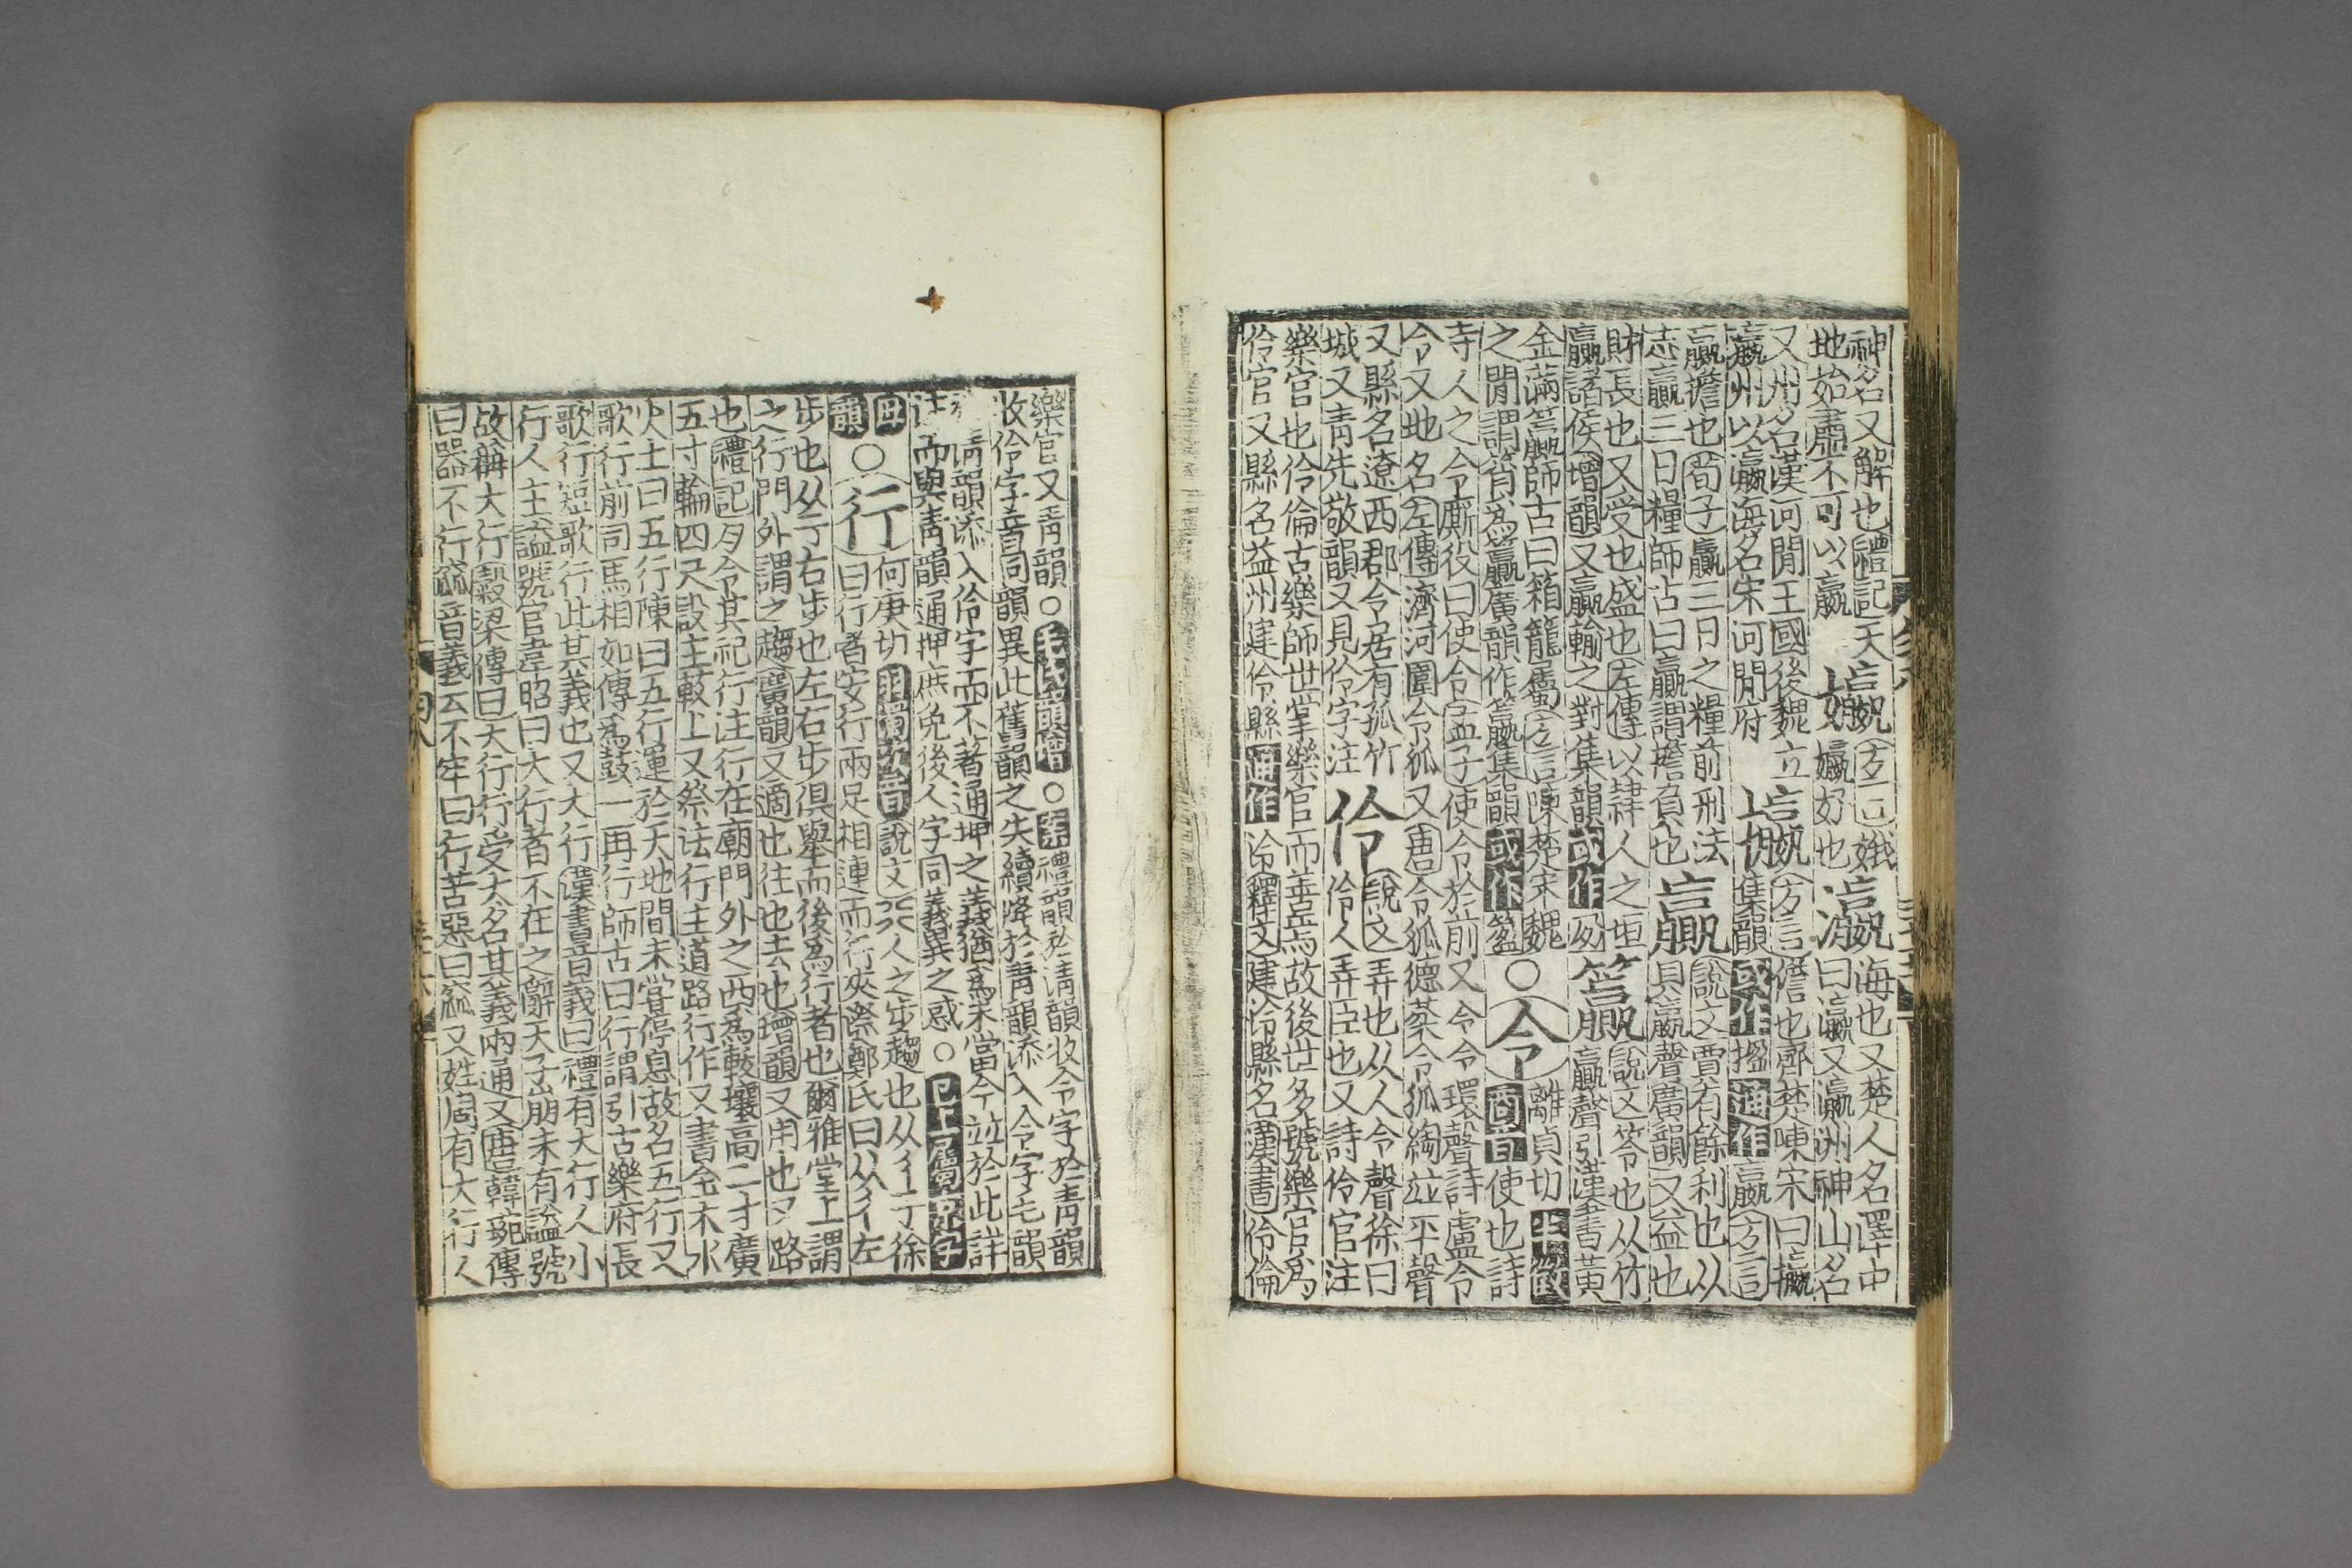 神名又解也禮記天
地始肅不可以嬴
嬴
方言娥
㜲好也
瀛
海也又楚人名澤中
曰瀛又瀛洲神山名
又州名漢河間王國後魏立
瀛州以瀛海名宋河間府
方言儋也齊楚陳宋曰攍
集韻或作揻通作嬴方言
嬴擔也荀子贏三日之糧前刑法
志贏三日糧師古曰贏謂擔負也
贏
說文賈有餘利也从
貝𣎆聲廣韻又益也
財長也又受也盛也左傳以隸人之垣
贏諸侯增韻又贏輸之對集韻或作
籯
說文笭也从竹
贏聲引漢書黃
金滿籯師古曰箱籠屬方言陳楚宋魏
之間謂筲爲籯廣韻作籝集韻或作
○
令
離貞切半徵
商音使也詩
寺人之令廝役曰使令孟子使令於前又令令環聲詩盧令
令又地名左傳濟河圍令狐又唐令狐德棻令狐綯竝平聲
又縣名遼西郡令居有孤竹
城又青先敬韻又見伶字注
伶
說文弄也从人令聲徐曰
伶人弄臣也又詩伶官注
樂官也伶倫古樂師世掌樂官而善焉故後世多號樂官爲
伶官又縣名益州建伶縣通作泠釋文建泠縣名漢書伶倫
樂官又青韻○毛氏韻增○案禮韻於清韻收令字於青韻
收伶字音同韻異此舊韻之失續降於青韻添入令字毛韻
清韻添入伶字而不著通押之義猶爲未當今竝於此詳
注而與青韻通押庶免後人字同義異之惑○已上屬京字
母
韻
○
行
何庚切羽濁次音說文人之步趨也从彳亍徐
曰行者安行兩足相連而行夾漈鄭氏曰从彳左
步也从亍右步也左右步俱舉而後爲行者也爾雅堂上謂
之行門外謂之趨廣韻又適也往也去也增韻又用也又路
也禮記月令其祀行注行在廟門外之西爲軷壤高二寸廣
五寸輪四尺設主軷上又祭法行主道路行作又書金木水
火土曰五行陳曰五行運於天地間未嘗停息故名五行又
歌行前司馬相如傳爲鼓一再行師古曰行謂引古樂府長
歌行短歌行此其義也又大行漢書音義曰禮有大行人小
行人主諡號官韋昭曰大行者不在之辭天子崩未有諡號
故稱大行穀梁傳曰大行行受大名其義兩通又唐韓琬傳
曰器不行窳音義云不牢曰行苦惡曰窳又姓周有大行人